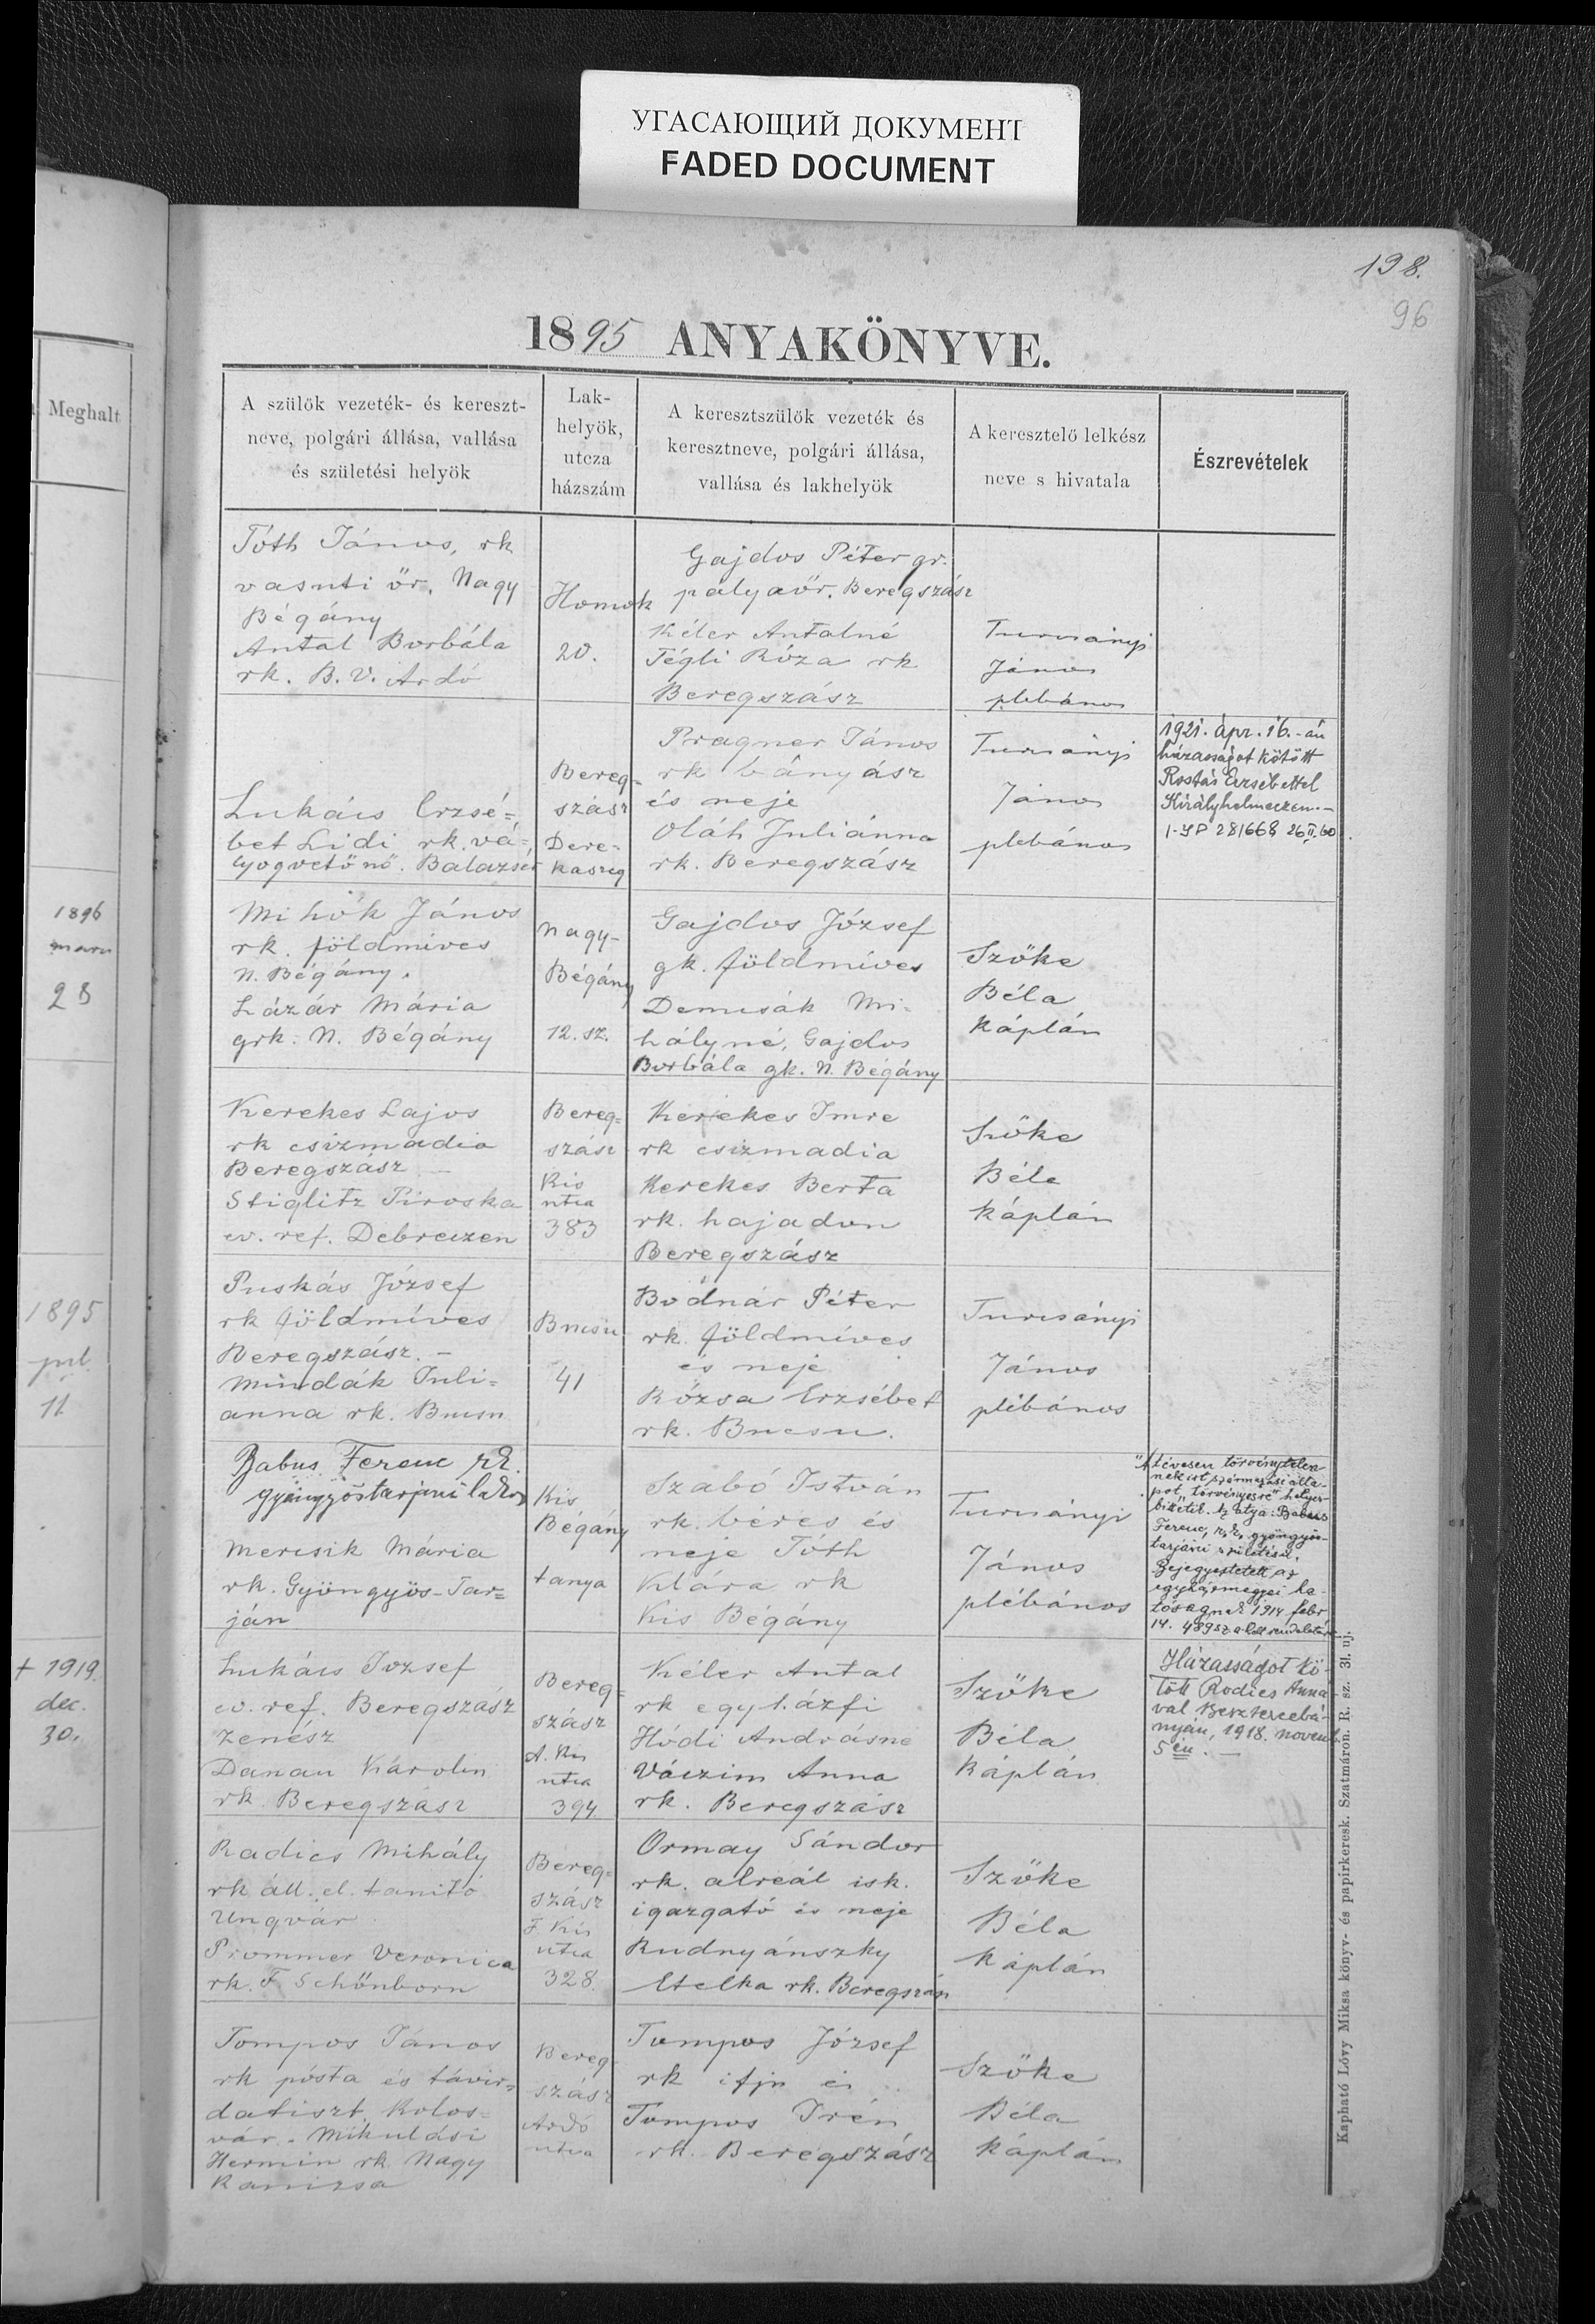 УГАСАЮЩИЙ ДОКУМЕНТ
FADED DOCUMENT
198.
96
1895 ANYAKÖNYVE.
Meghalt
A szülök vezeték- és kereszt-
neve, polgári állása, vallása
és születési helyök
Lak-
helyök,
utcza
házszám
A keresztszülök vezeték és
keresztneve, polgári állása,
vallása és lakhelyök
A keresztelő lelkész
neve s hivatala
Észrevételek
Tóth János, rk
vasuti őr, Nagy
Bégány
Antal Borbála
rk. B. V. Ardó
Homok
20.
Gajdos Péter gr.
pályaőr. Beregszász
Kéler Antalné
Tégli Róza rk
Beregszász
Turcsányi
János
plébános
Lukács Erzsé=
bet Lidi rk. vá=
lyogvetőnő. Balazsér
Bereg=
szász
Dere=
kaszeg
Pragner János
rk bányász
és neje
Oláh Juliánna
rk. Beregszász
Turcsányi
János
plébános
1921. ápr. 16.-án
házasságot kötött
Rostás Erzsébettel
Királyhelmeczen.-
1-YP 281668 26 II. 60
1896
marc
28
Mihók János
rk. földmíves
N. Bégány.
Lázár Mária
grk. N. Bégány
Nagy-
Bégány
12. sz.
Gajdos József
gk. földmíves
Demcsák Mi-
hályné, Gajdos
Borbála gk. N. Bégány
Szőke
Béla
káplán
Kerekes Lajos
rk csizmadia
Beregszász –
Stiglitz Piroska
ev. ref. Debreczen
Bereg=
szász
Kis
utca
383
Kerekes Imre
rk csizmadia
Kerekes Berta
rk. hajadon
Beregszász
Szőke
Béla
káplán
1895
jul.
11
Puskás József
rk földmíves
Beregszász. –
Mindák Juli=
anna rk. Bucsu
Bucsu
41
Bodnár Péter
rk. földmíves
és neje
Rózsa Erzsébet
rk. Bucsu.
Turcsányi
János
plébános
Babus Ferenc rk.
gyöngyöstarjáni lakos
Mercsik Mária
rk. Gyöngyös-Tar=
ján
Kis
Bégány
tanya
Szabó István
rk. béres és
neje Tóth
Klára rk
Kis Bégány
Turcsányi
János
plébános
"A tévesen törvénytelen-
nek írt származási álla-
pot „törvényesre" helyes-
bittetik. Az atya: Babus
Ferenc, r. k. gyöngyös-
tarjáni születésü.
Bejegyeztetett az
egyházmegyei ha-
tóságnak 1914 febr
14. 489 sz. a. kelt rendeletére
† 1919.
dec.
30.
Lukács József
ev. ref. Beregszász
zenész
Danau Károlin
rk Beregszász
Bereg=
szász
A. Kis
utca
394.
Kéler Antal
rk egyházfi
Hódi Andrásné
Váczim Anna
rk. Beregszász
Szőke
Béla
káplán
Házasságot kö-
tött Rodics Anná-
val Beszterczebá-
nyán, 1918. novemb.
5 én. –
Radics Mihály
rk áll. el. tanitó
Ungvár
Prommer Veronica
rk. F. Schönborn
Bereg=
szász
F. Kis
utca
328.
Ormay Sándor
rk. alreál isk.
igazgató és neje
Rudnyánszky
Etelka rk. Beregszász
Szőke
Béla
káplán
Tompos János
rk pósta és távir=
datiszt, Kolos=
vár. Mikulási
Hermin rk Nagy
Kanizsa
Bereg
szász
Ardó
utca
Tompos József
rk ifju és
Tompos Irén
rk. Beregszász
Szőke
Béla
káplán
Kapható Lóvy Miksa könyv- és papirkeresk. Szatmáron. R. sz. 31. uj.